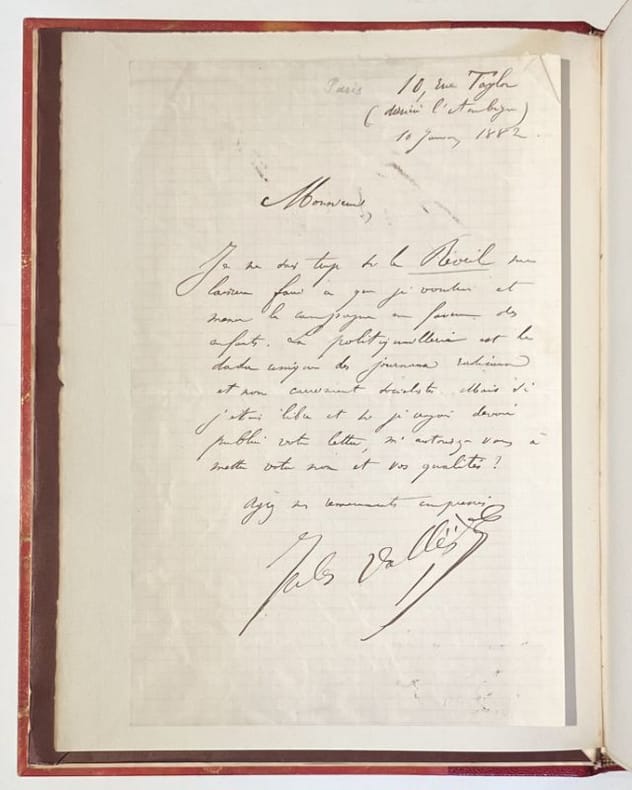 Paris
10, rue Taylor
(derrière l'Ambigu)
10 Janvier 1882.
Monsieur,
Je ne sais trop si le Réveil me
laissera faire ce que je voudrais et
mener la campagne en faveur des
enfants. La politiquaillerie est le
dada unique des journaux radicaux
et non carrément socialistes. Mais si
j'étais libre et si je croyais devoir
publier votre lettre, m'autorisez-vous à
mettre votre nom et vos qualités ?
Agréez mes remerciements empressés
Jules Vallès